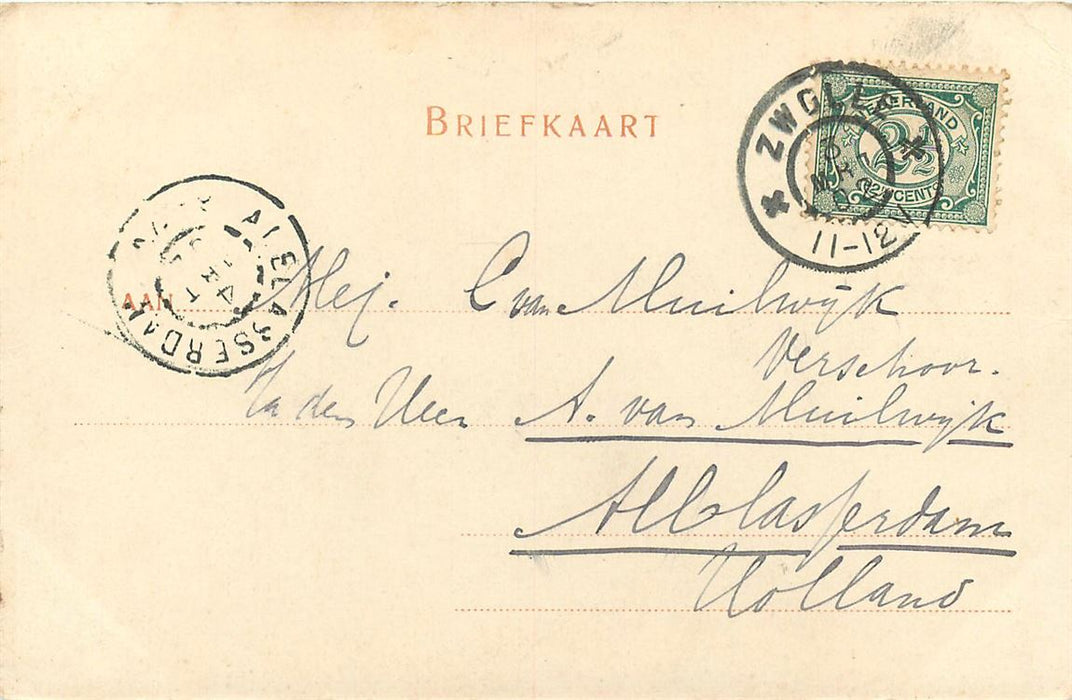 BRIEFKAART
ZWOLLE
11-12V
NEDERLAND
2½
2½ CENTS
ALBLASSERDAM
AAN
Mej. C van Muilwijk
Verschoor.
A. van Muilwijk
Alblasserdam
Holland